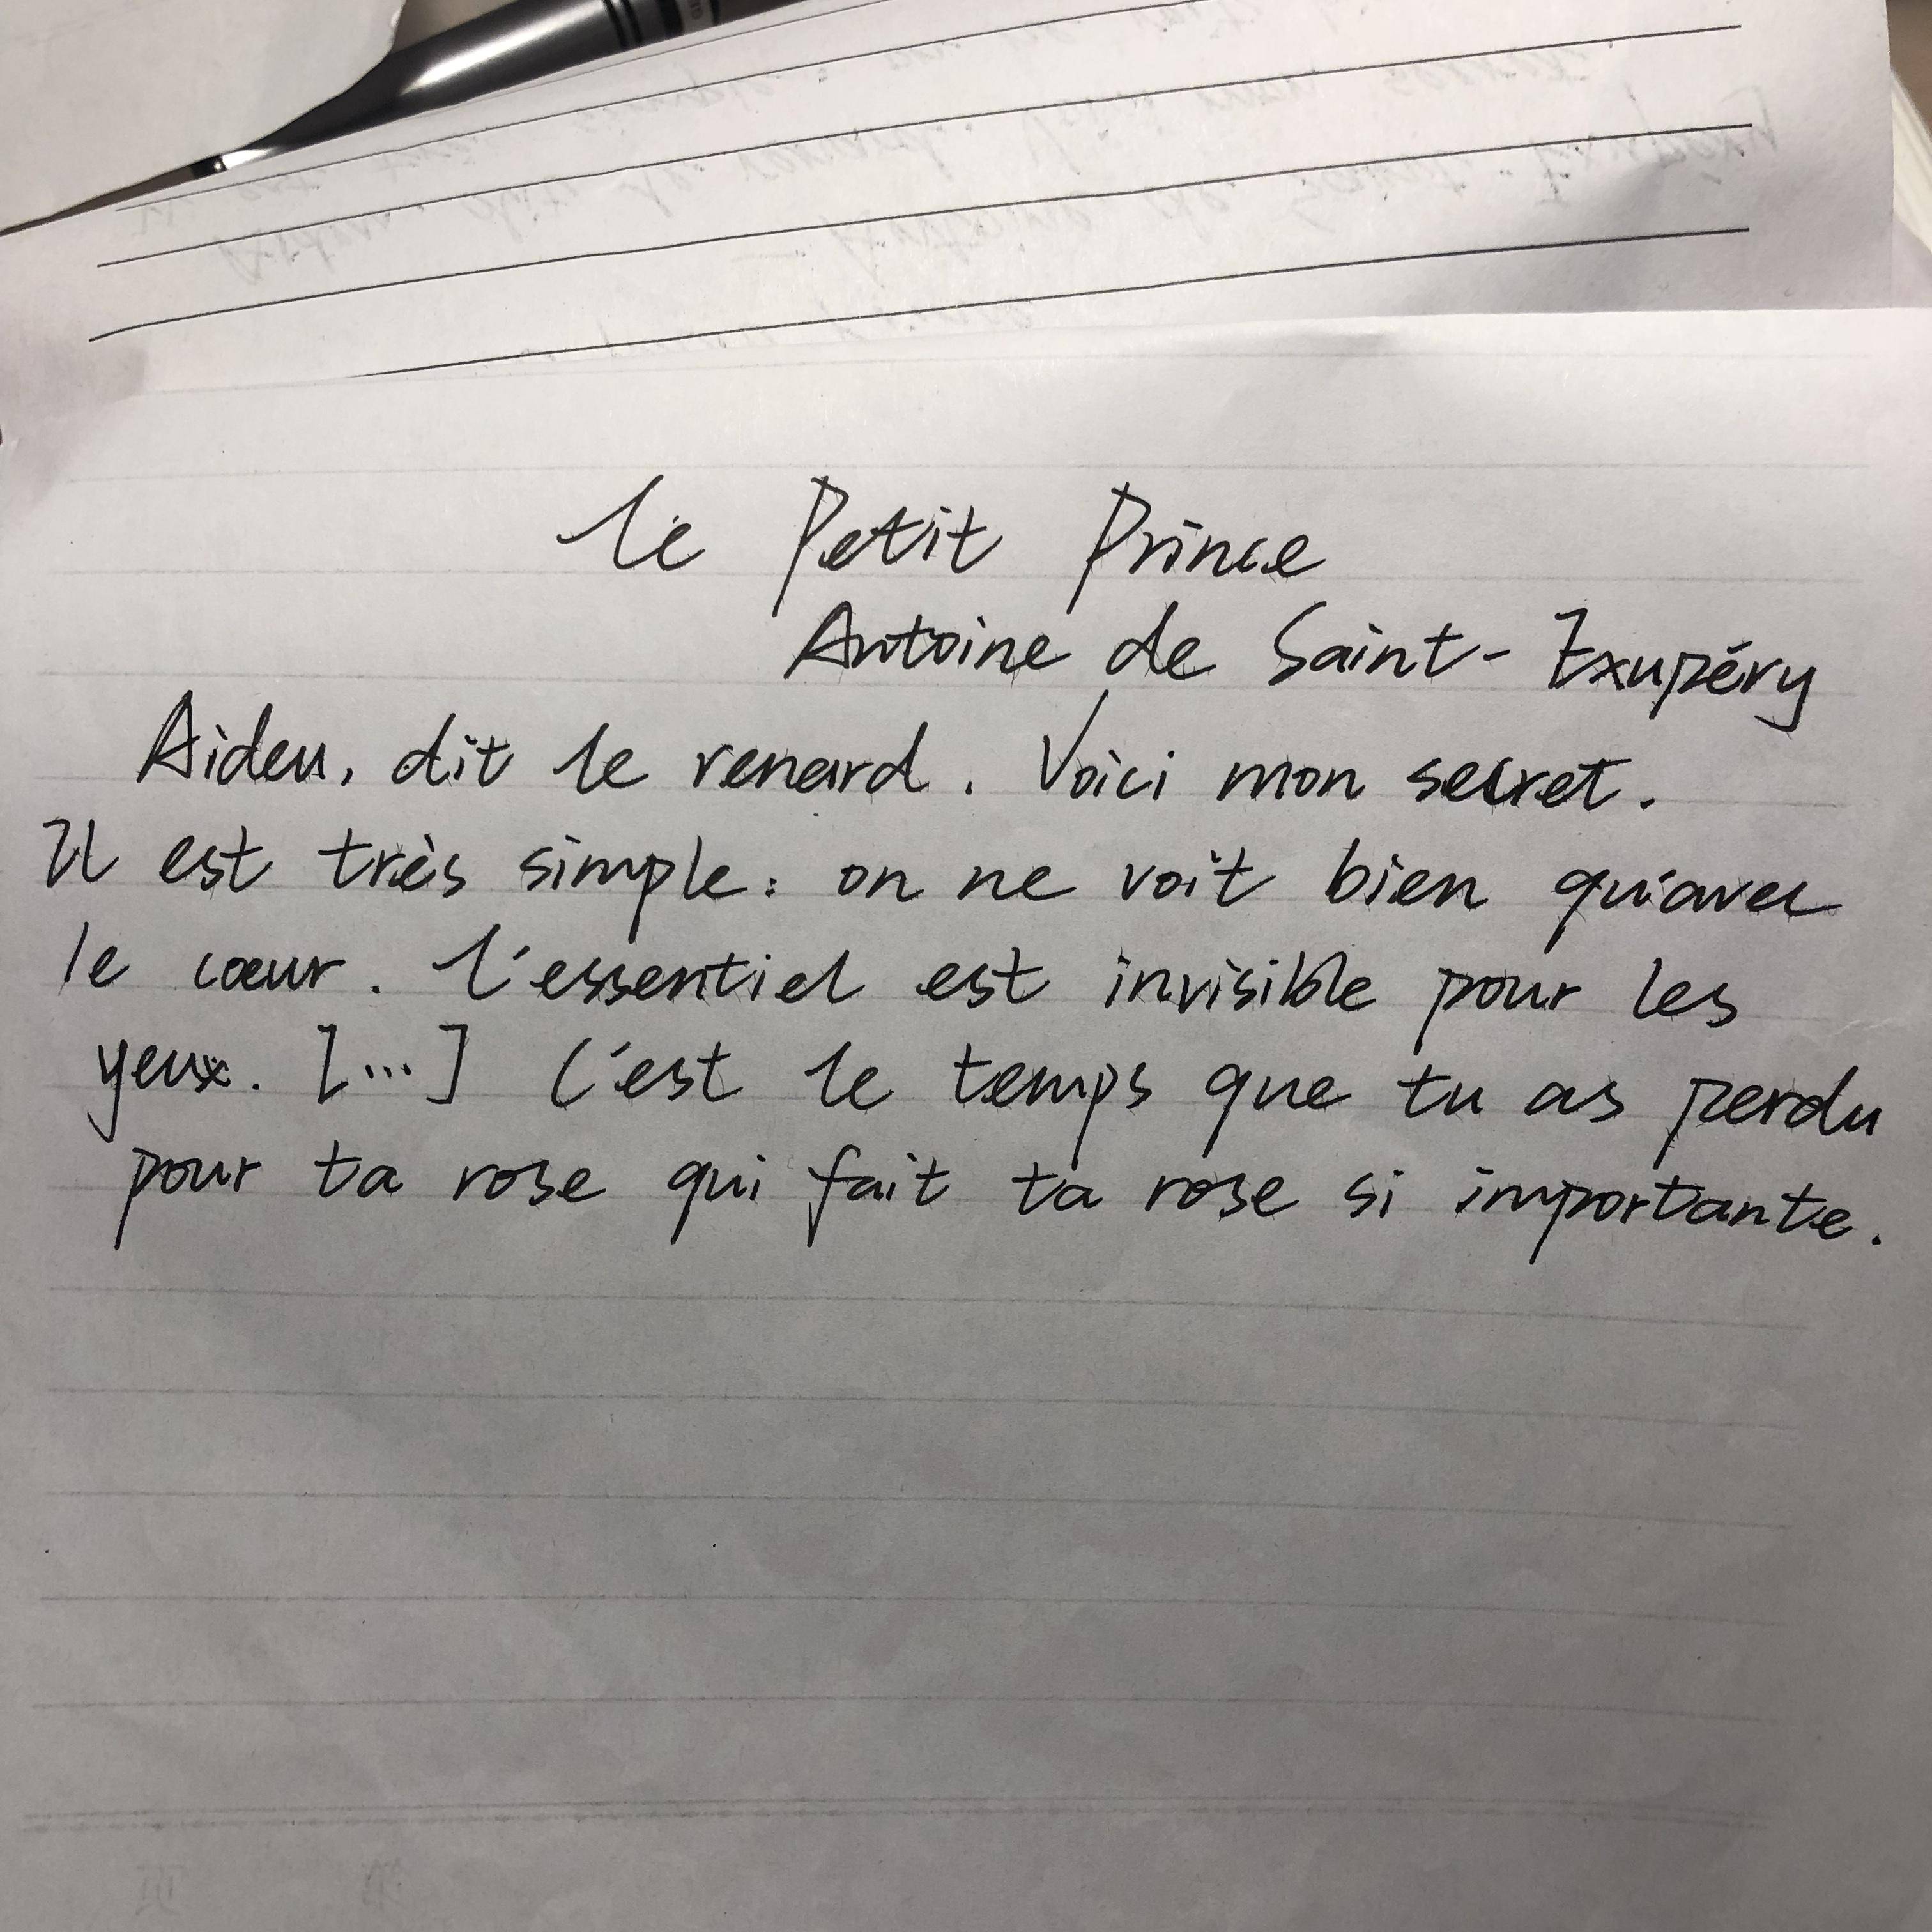 le Petit Prince
Antoine de Saint-Exupéry
Aideu, dit le renard. Voici mon secret.
Il est très simple: on ne voit bien qu'avec
le cœur. L'essentiel est invisible pour les
yeux. [...] C'est le temps que tu as perdu
pour ta rose qui fait ta rose si importante.